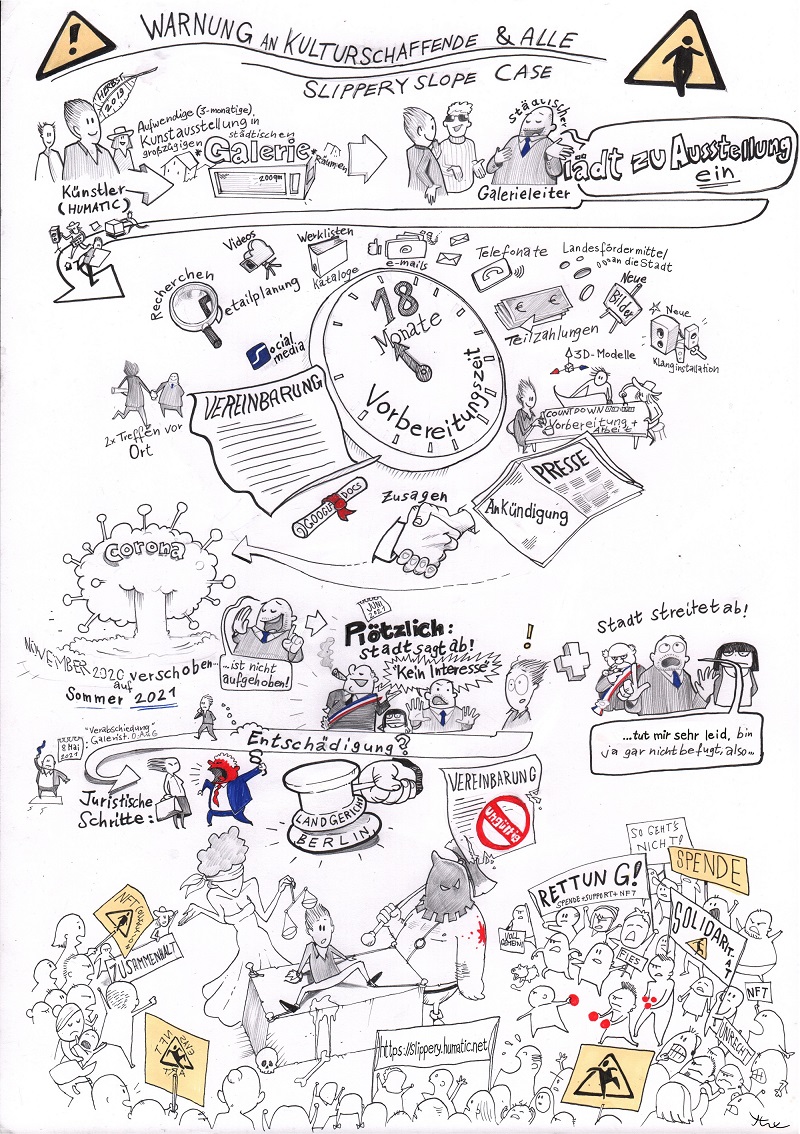 !
WARNUNG AN KULTURSCHAFFENDE & ALLE
SLIPPERY SLOPE CASE
HERBST
2019
Aufwendige (3-monatige)
Kunstausstellung in
großzügigen städtischen
*Galerie*
Räumen
200qm
Künstler
(HUMATIC)
Städtischer
Galerieleiter
lädt zu Ausstellung
ein
Recherchen
Videos
Detailplanung
Werklisten
Kataloge
e-mails
Telefonate
Landesfördermittel
an die Stadt
Teilzahlungen
Neue
Bilder
Neue
Klanginstallation
Social
media
18
Monate
Vorbereitungszeit
3D-Modelle
COUNTDOWN
Vorbereitung +
Arbeit
2x Treffen vor
Ort
VEREINBARUNG
GOOGLE DOCS
Zusagen
PRESSE
Ankündigung
corona
NOVEMBER 2020 verschoben...
auf
Sommer 2021
...ist nicht
aufgehoben!
JUNI
2021
Plötzlich:
Stadt sagt ab!
"Kein Interesse"
!
Stadt streitet ab!
...tut mir sehr leid, bin
ja gar nicht befugt, also...
8 Mai
2021
"Verabschiedung"
Entschädigung?
Juristische
Schritte:
LANDGERICHT
BERLIN
VEREINBARUNG
ungültig
NFT
ZUSAMMENHALT
NFT
ART
https://slippery.humatic.net
SO GEHT'S
NICHT!
SPENDE
RETTUNG!
SPENDE+SUPPORT+NFT
SOLIDARITÄT
VOLL
GEMEIN!
FIES
NFT
UNRECHT